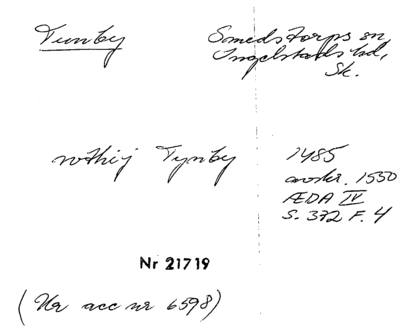 Tunby
Smedstorps sn,
Ingelstads hd,
Sk.
wthij Tynby
1485
avskr. 1550
ÆDA IV
S. 372 F. 4
Nr 21719
(Ur acc nr 6598)